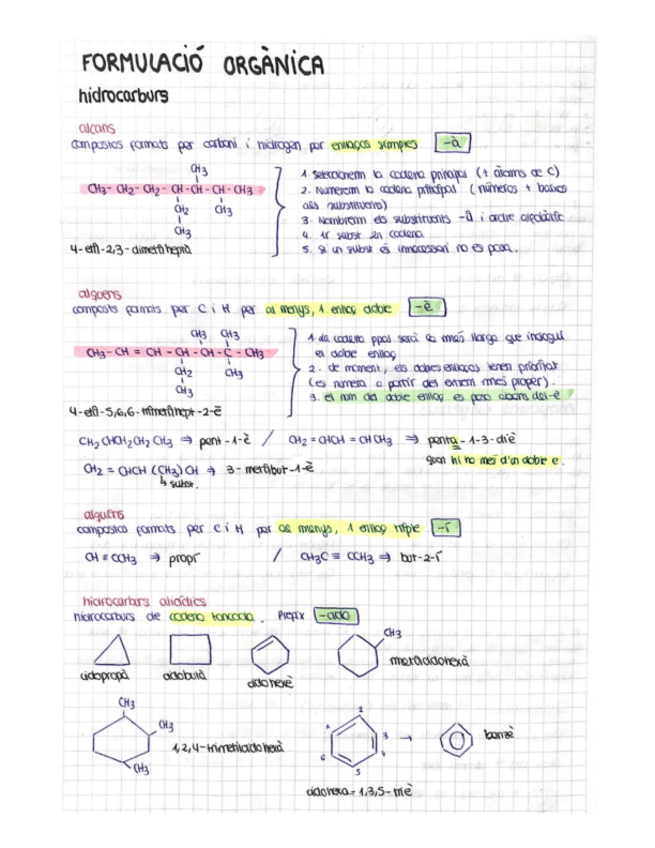 FORMULACIÓ ORGÀNICA
hidrocarburs
alcans
compostos formats per carboni i hidrogen per enllaços simples -à
CH3
CH3- CH2- CH2- CH-CH-CH-CH3
CH2 CH3
CH3
4-etil-2,3-dimetilheptà
1. Seleccionem la cadena principal (+ àtoms de C)
2. Numerem la cadena principal (números + baixos
als substituents)
3. Nombrem els substituents -il i ordre alfabètic
4. 1r subst 2n cadena
5. Si un subst és innecessari no es posa.
alquens
compostos formats per C i H per al menys, 1 enllaç doble -è
CH3 CH3
CH3- CH = CH - CH - CH - C - CH3
CH2 CH3
CH3
4-etil-5,6,6-trimetilhept-2-è
1. la cadena ppal serà la més llarga que inclogui
el doble enllaç
2. de moment, els dobles enllaços tenen prioritat
(es numera a partir del extrem més proper).
3. el nom del doble enllaç es posa abans del -è
CH2CHCH2CH2CH3 ⇒ pent-1-è / CH2=CHCH=CHCH3 ⇒ penta-1-3-diè
quan hi ha més d'un doble e.
CH2 = CHCH(CH3)CH ⇒ 3-metilbut-1-è
↳ subst.
alquins
compostos formats per C i H per al menys, 1 enllaç triple -í
CH ≡ CCH3 ⇒ propí / CH3C ≡ CCH3 ⇒ but-2-í
hidrocarburs alicíclics
hidrocarburs de cadena tancada. Prefix -ciclo
CH3
ciclopropà ciclobutà ciclohexè metilciclohexà
CH3
CH3
CH3
1,2,4-trimetilciclohexà
1 2 3 4 5 6
→ benzè
ciclohexa-1,3,5-triè